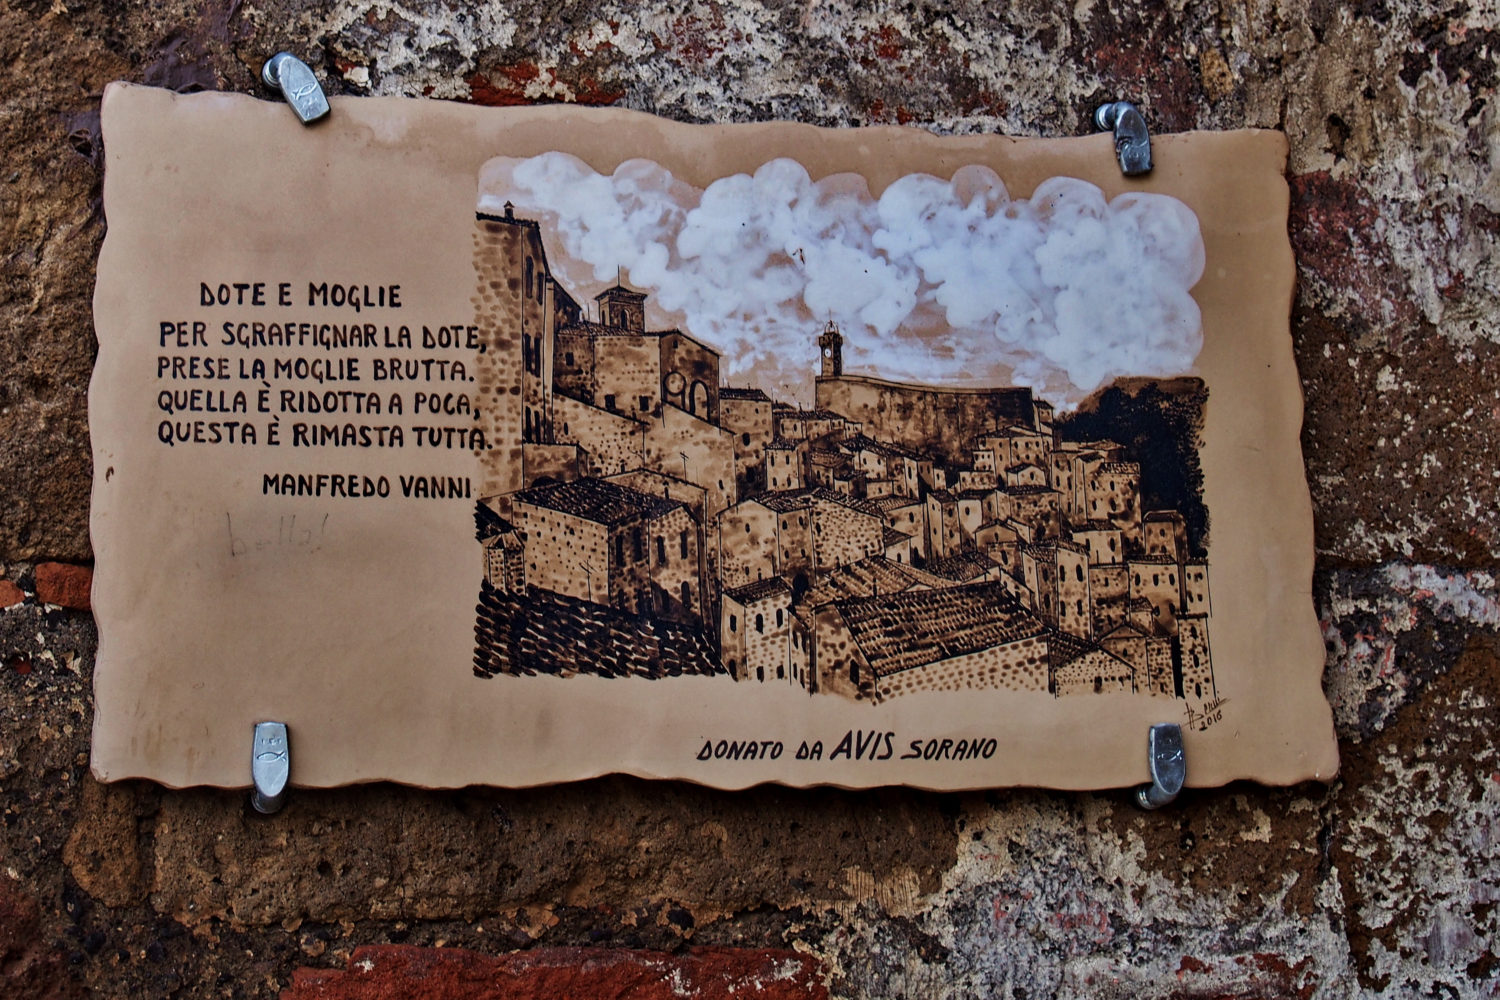 DOTE E MOGLIE
PER SGRAFFIGNAR LA DOTE,
PRESE LA MOGLIE BRUTTA.
QUELLA È RIDOTTA A POCA,
QUESTA È RIMASTA TUTTA.
MANFREDO VANNI
2016
DONATO DA AVIS SORANO